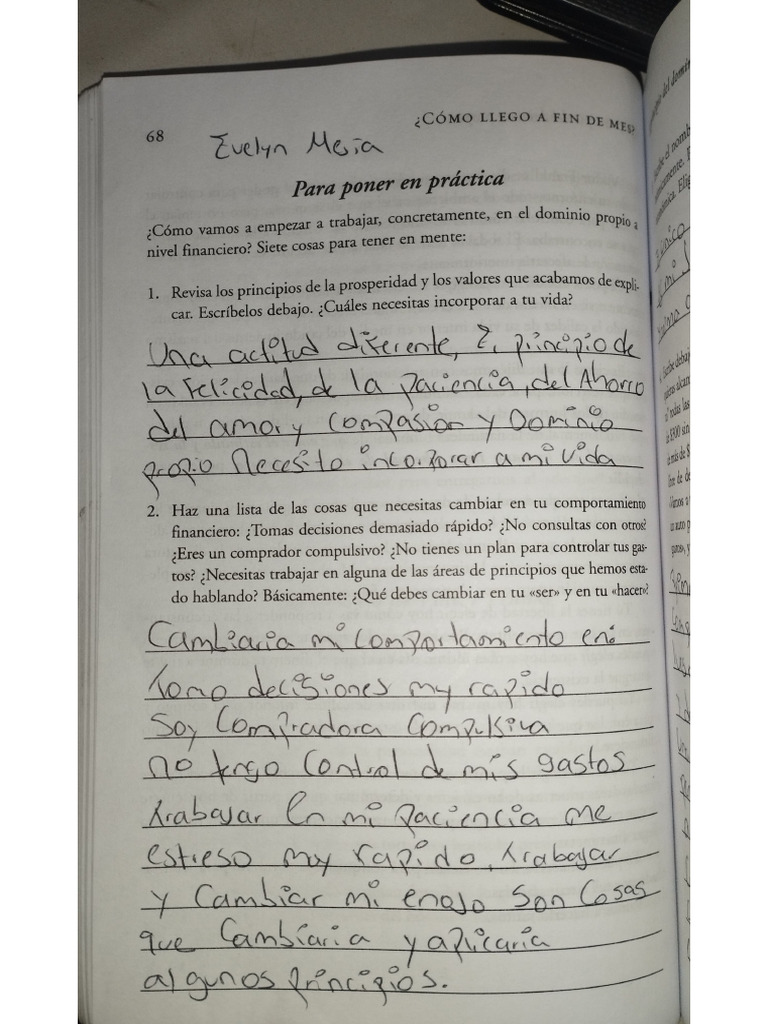 68
¿CÓMO LLEGO A FIN DE MES?
Evelyn Mesia
Para poner en práctica
¿Cómo vamos a empezar a trabajar, concretamente, en el dominio propio a
nivel financiero? Siete cosas para tener en mente:
1. Revisa los principios de la prosperidad y los valores que acabamos de expli-
car. Escríbelos debajo. ¿Cuáles necesitas incorporar a tu vida?
Una actitud diferente, principio de
la Felicidad, de la paciencia, del Ahorro
del amor y compasion y Dominio
propio Necesito incorporar a mi vida
2. Haz una lista de las cosas que necesitas cambiar en tu comportamiento
financiero: ¿Tomas decisiones demasiado rápido? ¿No consultas con otros?
¿Eres un comprador compulsivo? ¿No tienes un plan para controlar tus gas-
tos? ¿Necesitas trabajar en alguna de las áreas de principios que hemos esta-
do hablando? Básicamente: ¿Qué debes cambiar en tu «ser» y en tu «hacer»?
Cambiaria mi comportamiento en:
Tomo decisiones muy rapido
Soy Compradora Compulsiva
no tengo Control de mis gastos
trabajar En mi paciencia me
estreso muy rapido, trabajar
y Cambiar mi enojo Son Cosas
que Cambiaria y aplicaria
algunos principios.